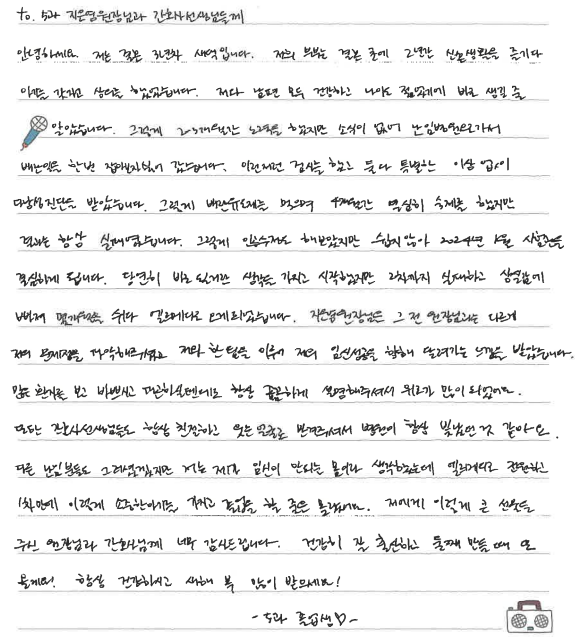 to. 5과 지은영원장님과 간호사선생님들께
안녕하세요. 저는 결혼 3년차 새댁입니다. 저희 부부는 결혼 초에 2년간 신혼생활을 즐기다
아이를 갖자고 상의를 했었습니다. 저와 남편 모두 건강하고 나이도 젊었기에 바로 생길 줄
알았습니다. 그렇게 2~3개월간 노력을 했지만 소식이 없어 난임병원으로가서
배란일을 한번 잡아보자싶어 갔습니다. 이런저런 검사를 했고 둘다 특별한 이상 없이
다낭성진단을 받았습니다. 그렇게 배란유도제를 먹으며 4개월간 열심히 숙제를 했지만
결과는 항상 실패였습니다. 그렇게 인공수정도 해보았지만 쉽지않아 2024년 1월 시험관을
결심하게 됩니다. 당연히 바로 되겠지란 생각을 가지고 시작했지만 2차까지 실패하고 상실감에
빠져 몇개월을 쉬다 엘르메디로 오게되었습니다. 지은영원장님은 그 전 원장님과는 다르게
저의 문제점을 파악해주셨고 저와 한 팀을 이루어 저의 임신성공을 향해 달려가는 느낌을 받았습니다.
많은 환자를 보고 바쁘시고 피곤하실텐데도 항상 꼼꼼하게 설명해주셔서 위로가 많이 되었어요.
또한 간호사선생님들도 항상 친절하고 웃는 얼굴로 반겨주셔서 병원이 항상 빛났던것 같아요.
다른 난임분들도 그러셨겠지만 저는 제가 임신이 안되는 몸이라 생각하였는데 엘르메디로 전원하고
1차만에 이렇게 소중한아기를 가지고 졸업을 할 줄은 몰랐어요. 저에게 이렇게 큰 선물을
주신 원장님과 간호사님께 너무 감사드립니다. 건강히 잘 출산하고 둘째 만들때 또
올게요! 항상 건강하시고 새해 복 많이 받으세요!
-5과 졸업생-